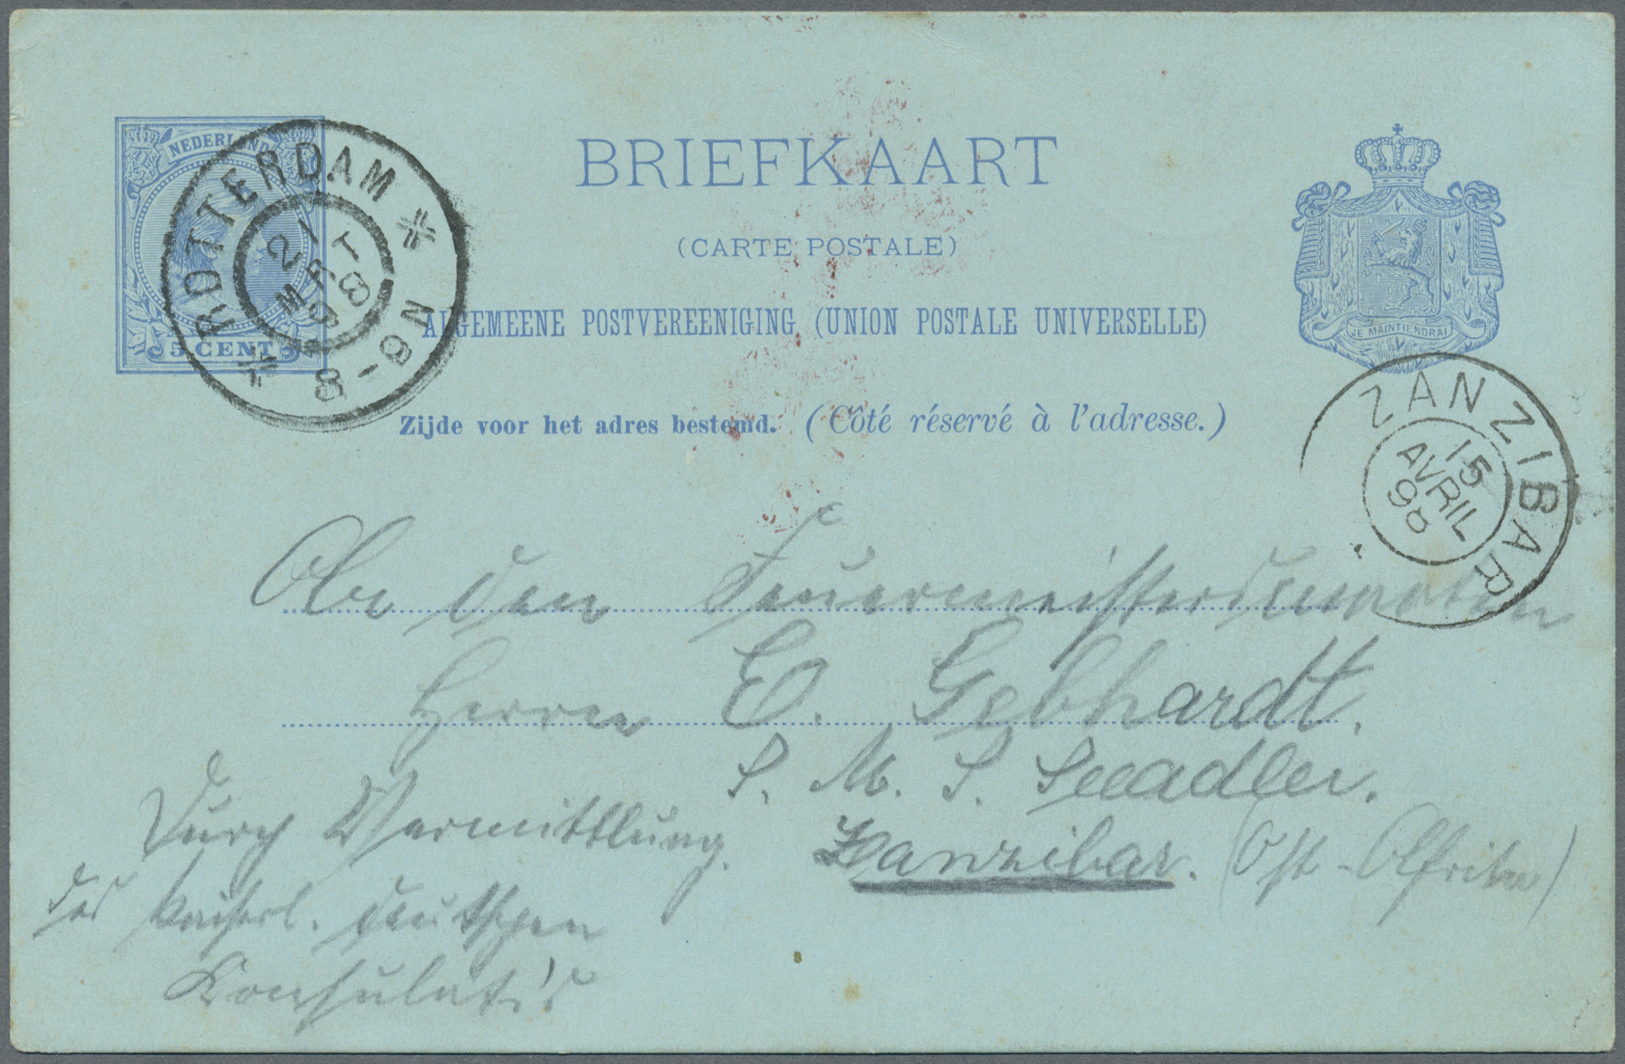 NEDERLAND
5 CENT
ROTTERDAM
21
MRT
98
8-9N
BRIEFKAART
(CARTE POSTALE)
ALGEMEENE POSTVEREENIGING (UNION POSTALE UNIVERSELLE)
Zijde voor het adres bestemd. (Côté réservé à l'adresse.)
JE MAINTIENDRAI
ZANZIBAR
15
AVRIL
98
den
Herrn E. Gebhardt.
S. M. S. Seeadler.
Zanzibar. (Ost-Afrika)
Durch Vermittlung
des Kaiserl. deutschen
Konsulat's